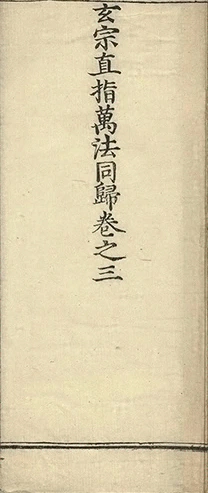 玄宗直指萬法同歸卷之三